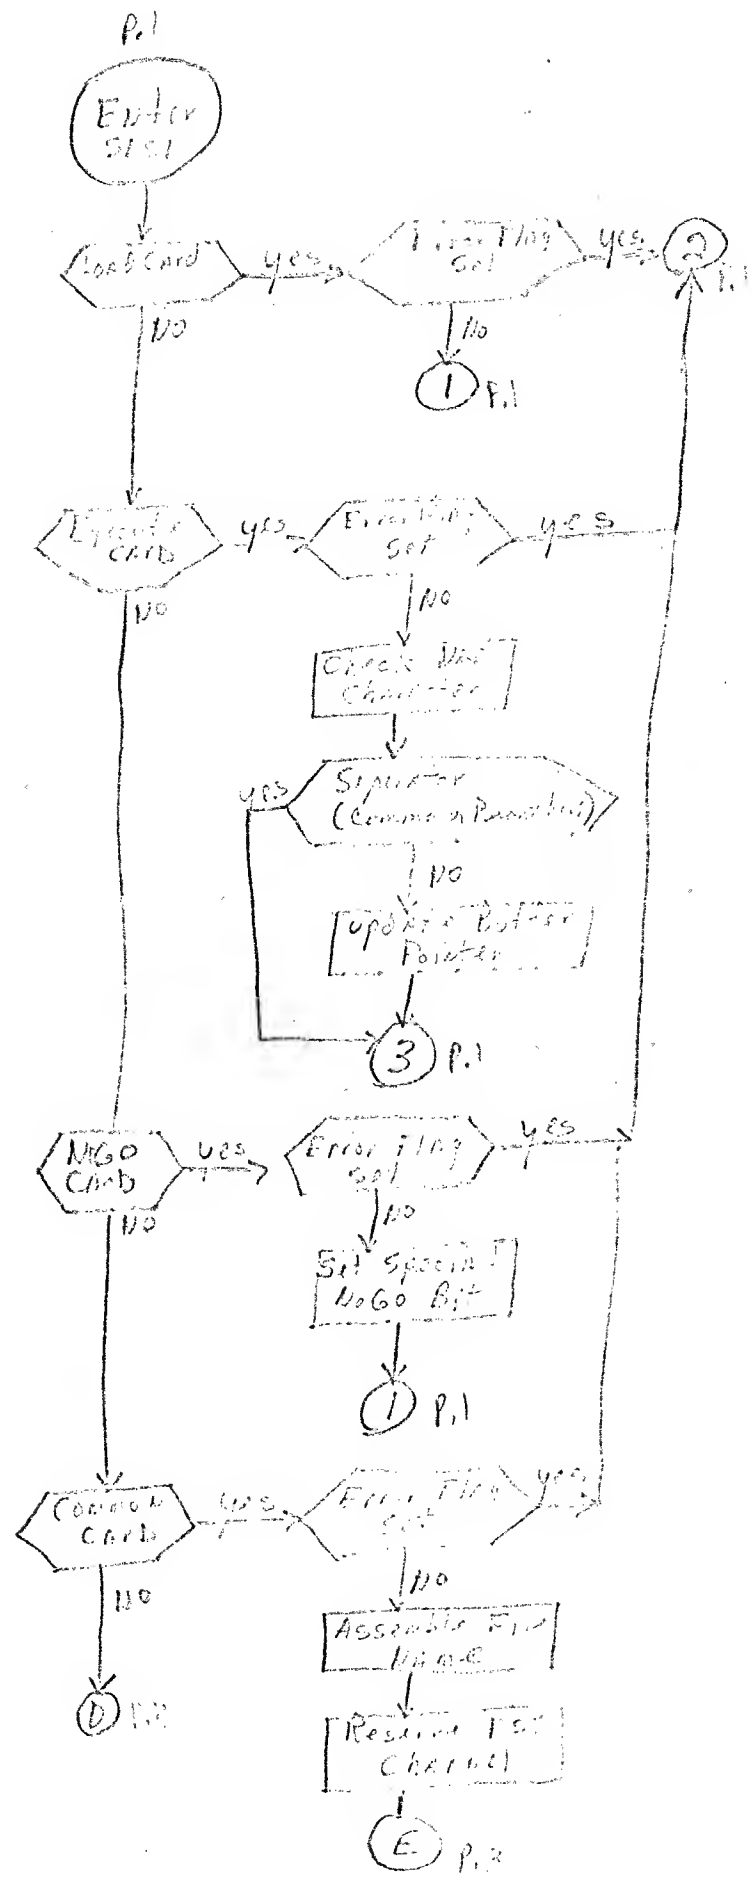 P.1
Enter
SISI
Load Card
yes
Error Flag
Set
yes
2
P.1
NO
No
1
P.1
Execute
CARD
yes
Error Flag
Set
yes
NO
NO
Check Next
Character
yes
Separator
(Comma or
NO
Update Buffer
Pointer
3
P.1
NoGO
CArD
yes
Error Flag
Set
yes
NO
NO
Set Special
NoGO Bit
1
P.1
COMMON
CArD
yes
Error Flag
Set
yes
NO
NO
Assemble File
NAme
D
Reserve
Channel
E